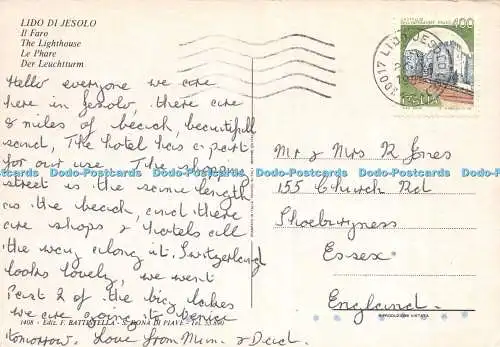 LIDO DI JESOLO
Il Faro
The Lighthouse
Le Phare
Der Leuchtturm
Hello everyone we are
here in Jesolo, there are
8 miles of beach, beautifull
sand, The hotel has a part
for our use. The shopping
street is the same length
as the beach, and there
are shops & hotels all
the way along it. Switzerland
looks lovely, we went
Past 2 of the big lakes
we are going to Venice
tomorrow. Love from Mum & Dad.
1408 - Ediz. F. BATTISTELLA - S. DONA DI PIAVE - Tel.
RIPRODUZIONE VIETATA
400
ITALIA
30017 LIDO JESOLO
Mr & Mrs R Jones
155 Church Rd
Shoeburyness
Essex
England.
Dodo-Postcards Dodo-Postcards Dodo-Postcards Dodo-Postcards Dodo-Postcards